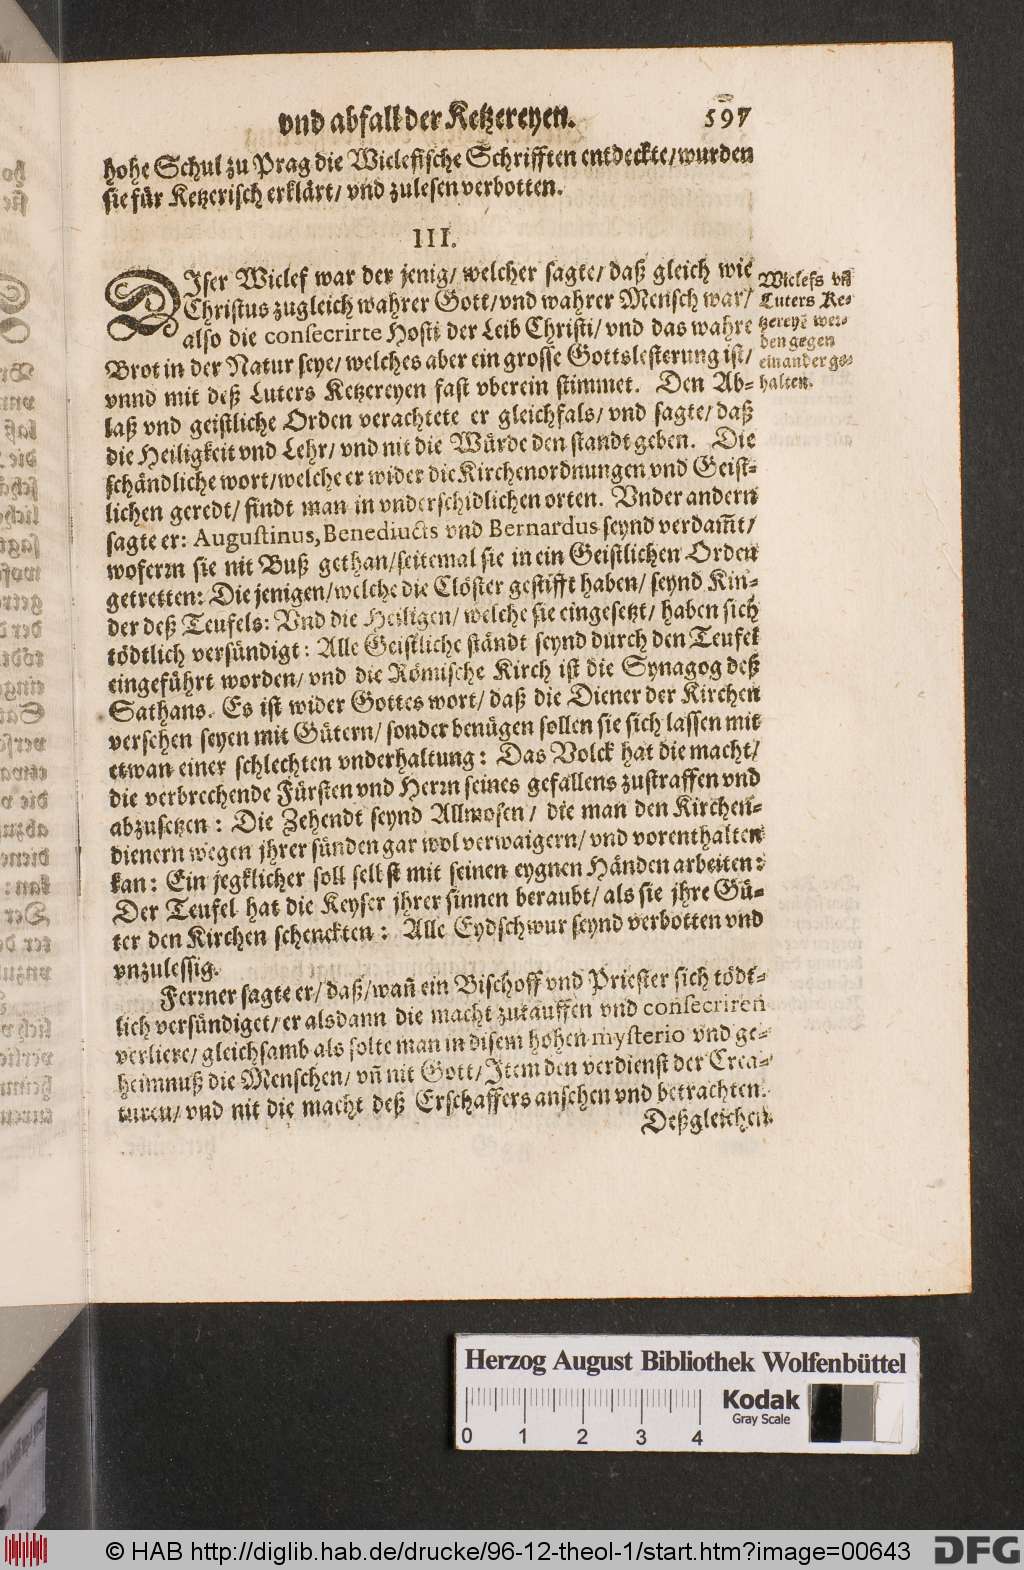 vnd abfall der Ketzereyen. 597
hohe Schul zu Prag die Wiclefische Schrifften entdeckte/ wurden
sie für Ketzerisch erklärt/ vnd zulesen verbotten.
III.
DIser Wiclef war der jenig/ welcher sagte/ daß gleich wie
Christus zugleich wahrer Gott/ vnd wahrer Mensch war/
also die consecrirte Hosti der Leib Christi/ vnd das wahre
Brot in der Natur seye/ welches aber ein grosse Gottslesterung ist/
vnnd mit deß Luters Ketzereyen fast vberein stimmet. Den Ab-
laß vnd geistliche Orden verachtete er gleichfals/ vnd sagte/ daß
die Heiligkeit vnd Lehr/ vnd nit die Würde den standt geben. Die
schändliche wort/ welche er wider die Kirchenordnungen vnd Geist-
lichen geredt/ findt man in vnderschidlichen orten. Vnder andern
sagte er: Augustinus, Benediucts vnd Bernardus seynd verdam̃t/
woferrn sie nit Buß gethan/ seitemal sie in ein Geistlichen Orden
getretten: Die jenigen/ welche die Clöster gestifft haben/ seynd Kin-
der deß Teufels: Vnd die Heiligen/ welche sie eingesetzt/ haben sich
tödtlich versündigt: Alle Geistliche ständt seynd durch den Teufel
eingeführt worden/ vnd die Römische Kirch ist die Synagog deß
Sathans. Es ist wider Gottes wort/ daß die Diener der Kirchen
versehen seyen mit Gütern/ sonder benügen sollen sie sich lassen mit
etwan einer schlechten vnderhaltung: Das Volck hat die macht/
die verbrechende Fürsten vnd Herrn seines gefallens zustraffen vnd
abzusetzen: Die Zehendt seynd Allmosen/ die man den Kirchen-
dienern wegen jhrer sünden gar wol verwaigern/ vnd vorenthalten
kan: Ein jegklicher soll selbst mit seinen eygnen Händen arbeiten:
Der Teufel hat die Keyser jhrer sinnen beraubt/ als sie jhre Gü-
ter den Kirchen schenckten: Alle Eydschwur seynd verbotten vnd
vnzulessig.
Ferrner sagte er/ daß/ wañ ein Bischoff vnd Priester sich tödt-
lich versündiget/ er alsdann die macht zutauffen vnd consecriren
verliere/ gleichsamb als solte man in disem hohen mysterio vnd ge-
heimnuß die Menschen/ vñ nit Gott/ Item den verdienst der Crea-
turen/ vnd nit die macht deß Erschaffers ansehen vnd betrachten.
Deßgleichen
Wiclefs vñ
Luters Ke-
tzereyẽ wer-
den gegen
einander ge-
halten.
Herzog August Bibliothek Wolfenbüttel
Kodak
Gray Scale
0 1 2 3 4
© HAB http://diglib.hab.de/drucke/96-12-theol-1/start.htm?image=00643
DFG